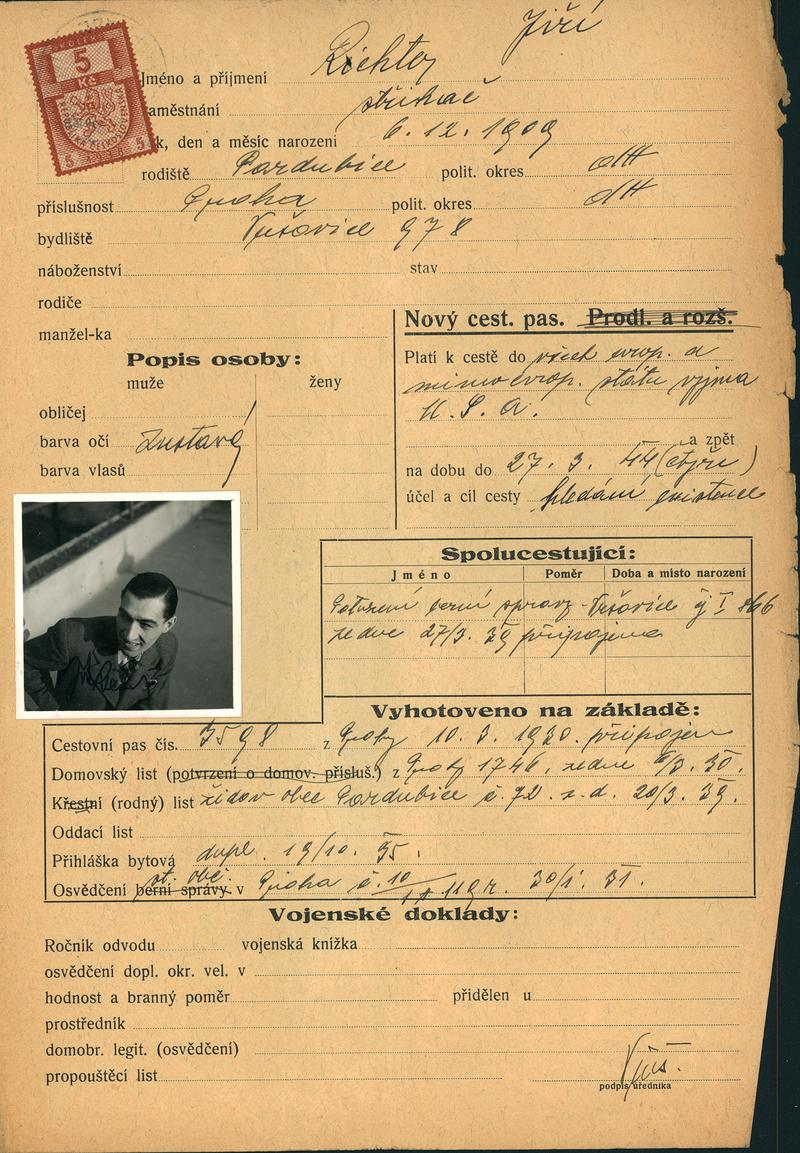 KOLEK
5
Kč
5 1938 5
Jméno a příjmení Richter Jiří
zaměstnání střihač
k, den a měsíc narození 6. 12. 1909
rodiště Pardubice polit. okres dtt
příslušnost Praha polit. okres dtt
bydliště Vršovice 978
náboženství stav
rodiče
manžel-ka
Popis osoby:
muže ženy
obličej
barva očí zůstává
barva vlasů
Nový cest. pas. Prodl. a rozš.
Platí k cestě do všech evrop. a
mimoevrop. států vyjma
U. S. A.
a zpět
na dobu do 27. 3. 44 (čtyři)
účel a cíl cesty hledání existence
Spolucestující:
Jméno Poměr Doba a místo narození
Potvrzení berní správy Vršovice čj I 866
ze dne 27/3. 39 připojeno
Vyhotoveno na základě:
Cestovní pas čís. 3598 z Prahy 10. 3. 1930. připojen
Domovský list (potvrzení o domov. přísluš.) z Prahy 1746, ze dne 3. 30.
Křestní (rodný) list židov obec Pardubice č. 72. z. d. 20/3. 39.
Oddací list
Přihláška bytová dupl. 19/10. 35.
st. obč.
Osvědčení berní správy v Praha č. 10/ 30/1. 31.
Vojenské doklady:
Ročník odvodu vojenská knížka
osvědčení dopl. okr. vel. v
hodnost a branný poměr přidělen u
prostředník
domobr. legit. (osvědčení)
propouštěcí list
podpis úředníka